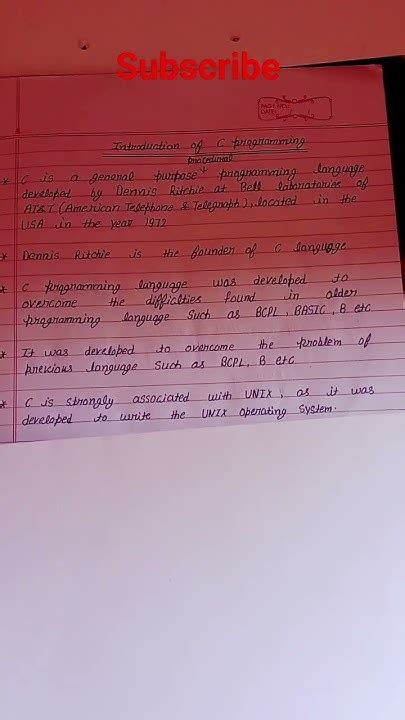 Subscribe
PAGE NO.:
DATE:
Introduction of C programming
procedural
* C is a general purpose programming language
developed by Dennis Ritchie at Bell laboratories of
AT&T (American Telephone & Telegraph), located in the
USA in the year 1972
* Dennis Ritchie is the founder of C language
* C programming language was developed to
overcome the difficlties found in older
programming language Such as BCPL, BASIC, B etc
* It was developed to overcome the problem of
previous language Such as BCPL, B etc
* C is strongly associated with UNIX, as it was
developed to write the UNIX operating System.